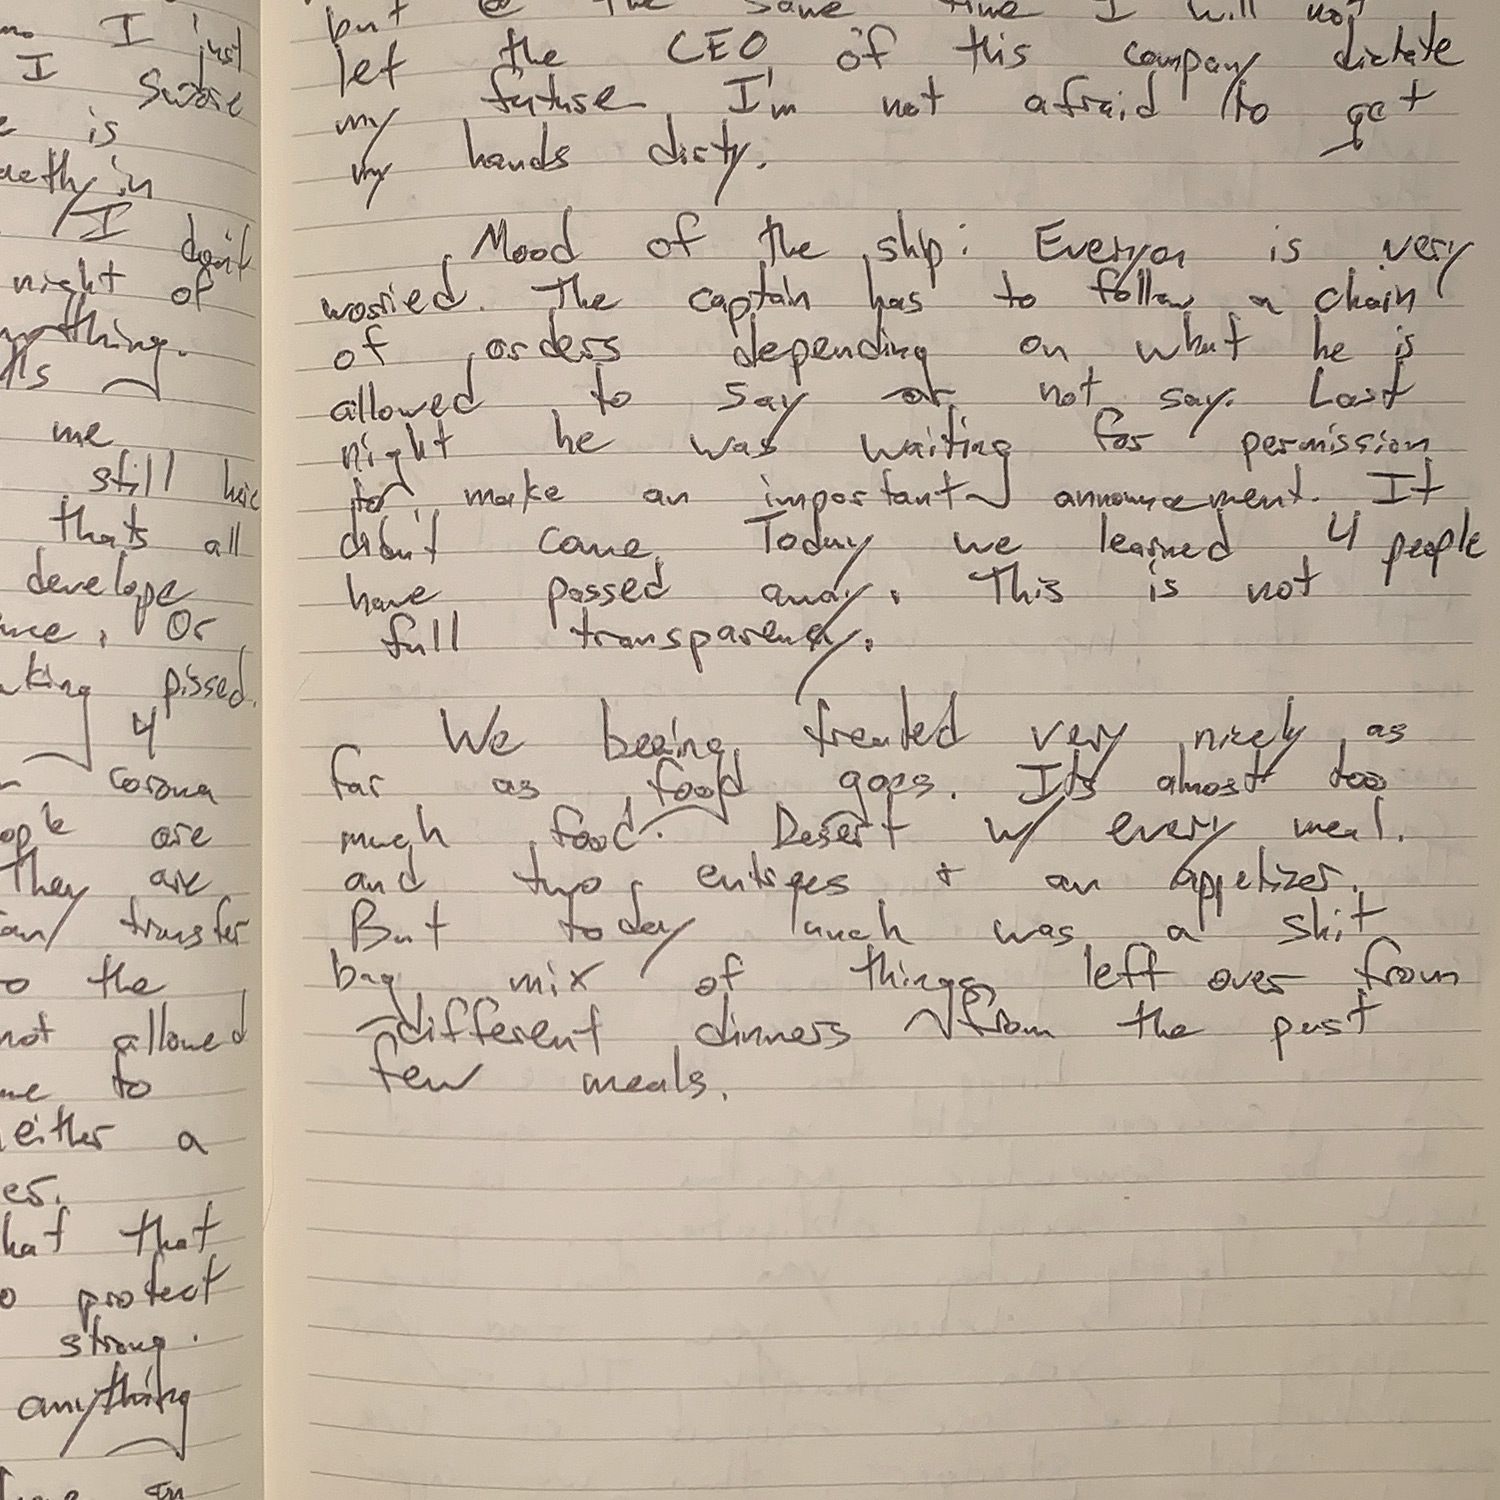 I just
I swore
is
in
I don't
night of
thing.
me
still here
thats all
develope
Or
pissed.
4
corona
are
They are
transfer
the
not allowed
to
either a
that
protect
strong.
anything
but @ the same time I will not
let the CEO of this company dictate
my future I'm not afraid to get
my hands dirty.
Mood of the ship: Everyon is very
worried. The captain has to follow a chain
of orders depending on what he is
allowed to say or not say. Last
night he was waiting for permission
to make an important announcement. It
didn't come. Today we learned 4 people
have passed away. This is not
full transparency.
We beeing treated very nicely as
far as food goes. Its almost too
much food. Desert w/ every meal.
and two entrees + an appetizer.
But today lunch was a shit
bag mix of things left over from
different dinners from the past
few meals.